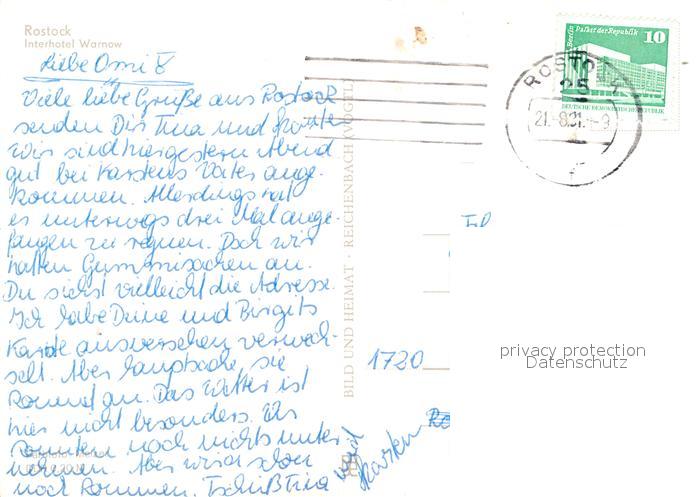 Rostock
Interhotel Warnow
Liebe Omi!
Viele liebe Grüße aus Rostock
senden Dir Tina und Karsten
Wir sind hier gestern Abend
gut bei Karstens Vater ange-
kommen. Allerdings hat
es unterwegs drei Mal ange-
fangen zu regnen. Doch wir
hatten Gummisachen an.
Du siehst vielleicht die Adresse.
Ich habe Deine und Birgits
Karte ausversehen verwech-
selt. Aber hauptsache, sie
kommt an. Das Wetter ist
hier nicht besonders. Wir
konnten noch nichts unter-
nehmen. Aber wird schon
noch kommen. Tschüß Tina
und Karsten
BILD UND HEIMAT · REICHENBACH (VOGTL)
ROSTOCK
25
21.-8.81.-9
Berlin, Palast der Republik 10
DEUTSCHE DEMOKRATISCHE REPUBLIK
1720
privacy protection
Datenschutz